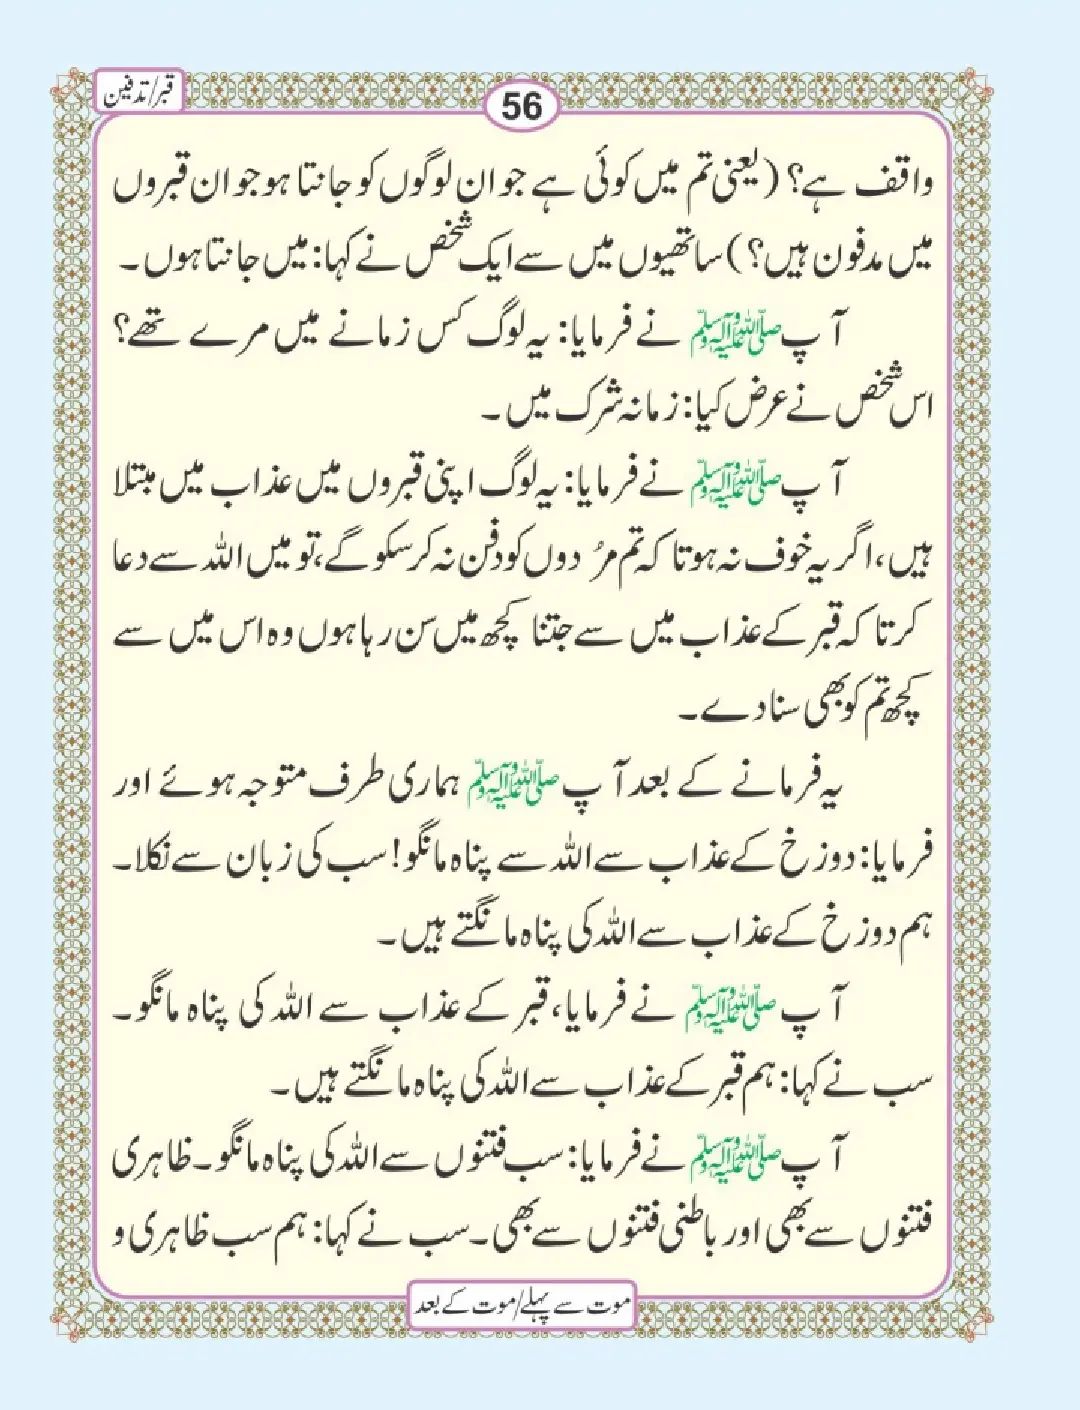 قبر/تدفین
56
واقف ہے؟ (یعنی تم میں کوئی ہے جو ان لوگوں کو جانتا ہو جو ان قبروں
میں مدفون ہیں؟) ساتھیوں میں سے ایک شخص نے کہا: میں جانتا ہوں۔
آپ صلی اللہ علیہ وآلہ وسلم نے فرمایا: یہ لوگ کس زمانے میں مرے تھے؟
اس شخص نے عرض کیا: زمانہ شرک میں۔
آپ صلی اللہ علیہ وآلہ وسلم نے فرمایا: یہ لوگ اپنی قبروں میں عذاب میں مبتلا
ہیں، اگر یہ خوف نہ ہوتا کہ تم مرُدوں کو دفن نہ کر سکو گے، تو میں اللہ سے دعا
کرتا کہ قبر کے عذاب میں سے جتنا کچھ میں سن رہا ہوں وہ اس میں سے
کچھ تم کو بھی سنا دے۔
یہ فرمانے کے بعد آپ صلی اللہ علیہ وآلہ وسلم ہماری طرف متوجہ ہوئے اور
فرمایا: دوزخ کے عذاب سے اللہ سے پناہ مانگو! سب کی زبان سے نکلا۔
ہم دوزخ کے عذاب سے اللہ کی پناہ مانگتے ہیں۔
آپ صلی اللہ علیہ وآلہ وسلم نے فرمایا، قبر کے عذاب سے اللہ کی پناہ مانگو۔
سب نے کہا: ہم قبر کے عذاب سے اللہ کی پناہ مانگتے ہیں۔
آپ صلی اللہ علیہ وآلہ وسلم نے فرمایا: سب فتنوں سے اللہ کی پناہ مانگو۔ ظاہری
فتنوں سے بھی اور باطنی فتنوں سے بھی۔ سب نے کہا: ہم سب ظاہری و
موت سے پہلے/موت کے بعد